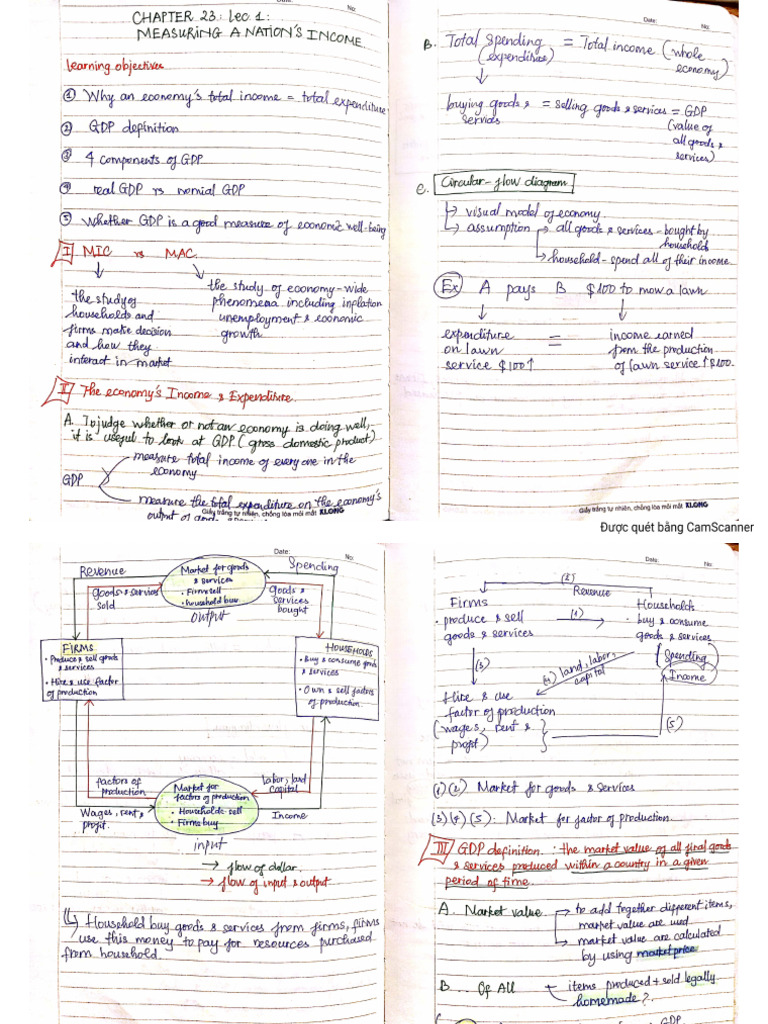 No:
CHAPTER 23: Lec 1:
MEASURING A NATION'S INCOME
Learning objectives
① Why an economy's total income = total expenditure
② GDP definition
③ 4 components of GDP
④ real GDP vs nomial GDP
⑤ Whether GDP is a good measure of economic well-being
I MIC vs MAC
the study of
households and
firms make decision
and how they
interact in market
the study of economy-wide
phenomena including inflation
unemployment & economic
growth
II The economy's Income & Expenditure.
A. To judge whether or not an economy is doing well,
it is useful to look at GDP (gross domestic product)
GDP
measure total income of everyone in the
economy
measure the total expenditure on the economy's
output of
Giấy trắng tự nhiên, chống lóa mỏi mắt KLONG
Date: No:
B. Total Spending = Total income (whole
(expenditure) economy)
buying goods & = selling goods & services = GDP
services (value of
all goods &
services)
C. Circular-flow diagram
visual model of economy
assumption all goods & services - bought by
households
household - spend all of their income
Ex A pays B $100 to mow a lawn
expenditure = income earned
on lawn from the production
service $100↑ of lawn service ↑$100.
Giấy trắng tự nhiên, chống lóa mỏi mắt KLONG
Được quét bằng CamScanner
Date: No:
Revenue
Spending
Market for goods
& services
• Firm sell
• household buy
output
goods & services
sold
goods &
services
bought
FIRMS
• Produce & sell goods
& services
• Hire & use factor
of production
HOUSEHOLDS
• Buy & consume goods
& services
• Own & sell factors
of production
factors of
production
labor, land
capital
Market for
factors of production
• Households sell
• Firms buy
Wages, rent &
profit.
Income
input
→ flow of dollar.
→ flow of input & output
Household buy goods & services from firms, firms
use this money to pay for resources purchased
from household.
Date: No:
(2)
Revenue
Firms
• produce & sell
goods & services
(1)
Households
• buy & consume
goods & services
(Spending)
Income
(3)
(4) land, labor,
capital
Hire & use
factor of production
(wages, rent &
profit)
(5)
(1)(2) Market for goods & services
(3)(4)(5): Market for factor of production.
III GDP definition : the market value of all final goods
& services produced within a country in a given
period of time.
A. Market value
to add together different items,
market value are used
market value are calculated
by using market price
B. Of All
items produced + sold legally
homemade?
GDP